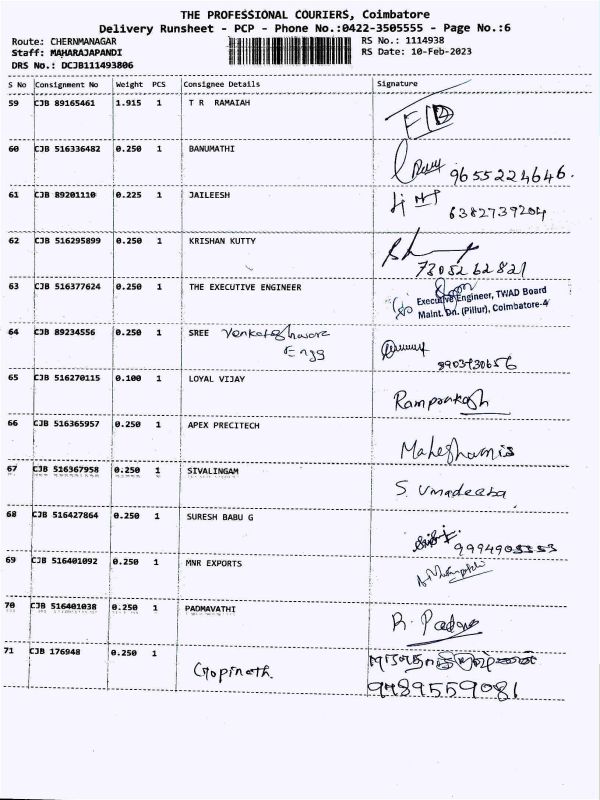 THE PROFESSIONAL COURIERS, Coimbatore
Delivery Runsheet - PCP - Phone No.:0422-3505555 - Page No.:6
Route: CHERNMANAGAR
Staff: MAHARAJAPANDI
DRS No.: DCJB111493806
RS No.: 1114938
RS Date: 10-Feb-2023
S No Consignment No Weight PCS Consignee Details Signature
59 CJB 89165461 1.915 1 T R RAMAIAH
60 CJB 516336482 0.250 1 BANUMATHI
9655224646.
61 CJB 89201110 0.225 1 JAILEESH
6382739204
62 CJB 516295899 0.250 1 KRISHAN KUTTY
7305262821
63 CJB 516377624 0.250 1 THE EXECUTIVE ENGINEER
Executive Engineer, TWAD Board
Maint. Dn. (Pillur), Coimbatore-4
64 CJB 89234556 0.250 1 SREE Venkateshwara
Engg
8903730656
65 CJB 516270115 0.100 1 LOYAL VIJAY
Ramprakash
66 CJB 516365957 0.250 1 APEX PRECITECH
67 CJB 516367958 0.250 1 SIVALINGAM
S. Umadeeba
68 CJB 516427864 0.250 1 SURESH BABU G
9994903353
69 CJB 516401092 0.250 1 MNR EXPORTS
70 CJB 516401038 0.250 1 PADMAVATHI
R. Padma
71 CJB 176948 0.250 1 Gopinath
9789559081